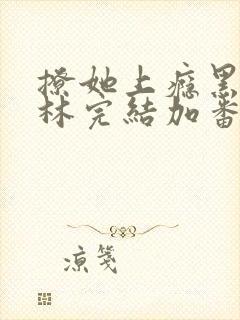 撩她上瘾黑
林完結加番
凉笺